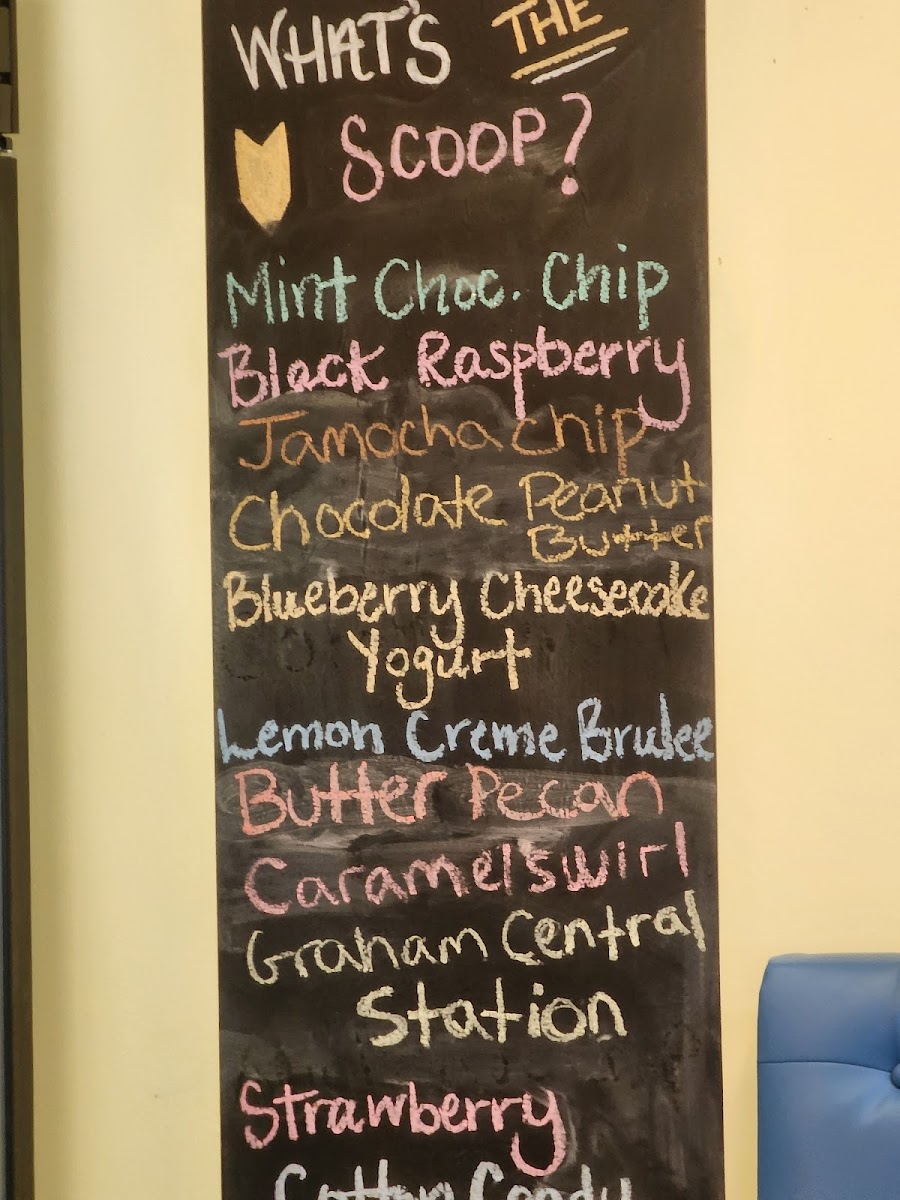 WHAT'S THE
SCOOP?
Mint Choc. Chip
Black Raspberry
Jamocha chip
Chocolate Peanut
Butter
Blueberry Cheesecake
Yogurt
Lemon Creme Brulee
Butter Pecan
Caramel swirl
Graham Central
Station
Strawberry
Cotton Candy